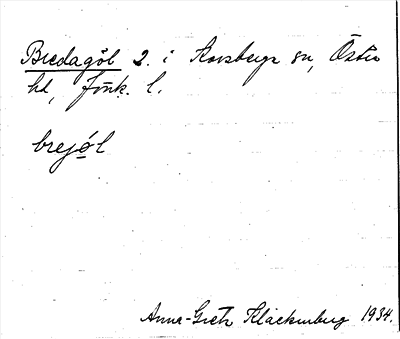 Bredagöl 2. i Korsberga sn, Östra
hd, Jönk. l.
brejo̲l
Anna-Greta Kläckenberg 1934.